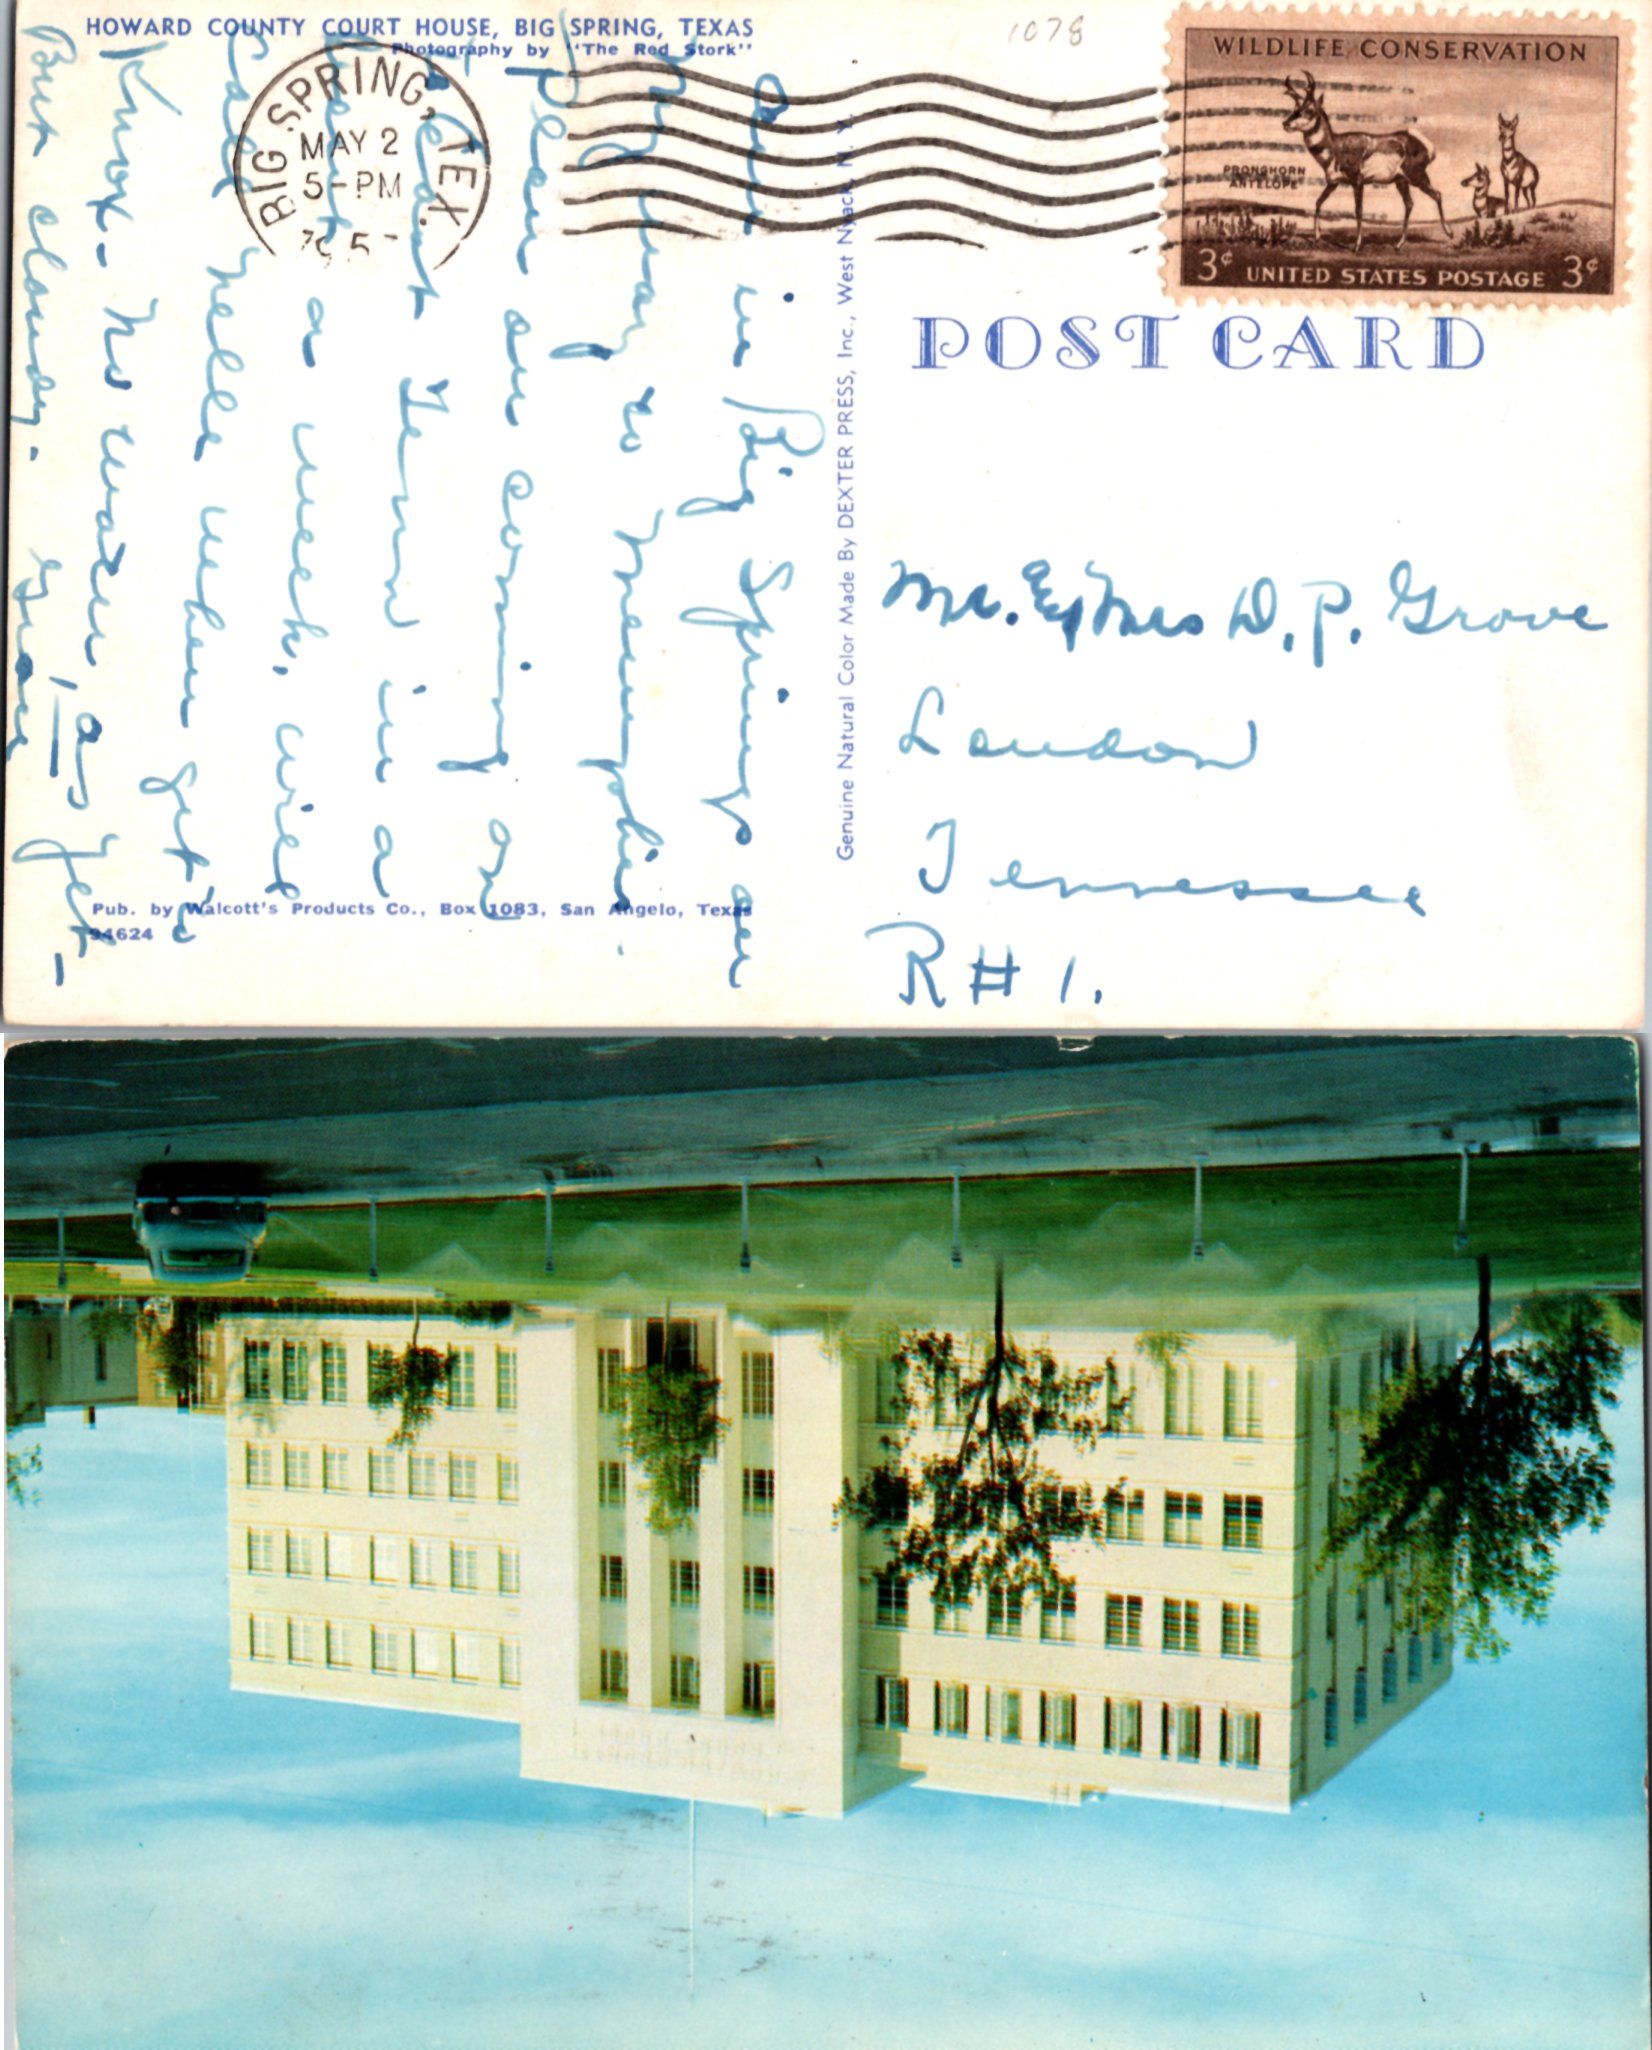 HOWARD COUNTY COURT HOUSE, BIG SPRING, TEXAS
Photography by "The Red Stork"
1078
BIG SPRING, TEX.
MAY 2
5-PM
WILDLIFE CONSERVATION
PRONGHORN
ANTELOPE
3¢ UNITED STATES POSTAGE 3¢
POST CARD
Genuine Natural Color Made By DEXTER PRESS, Inc., West Nyack, N. Y.
Am in Big Springs on
my way to Memphis.
Plan on coming on
to East Tenn in a
a week. Will
Call Nelle when get to
Knox. No water, as yet -
But cloudy. Grace
Mr. & Mrs D. P. Grove
Loudon
Tennessee
R # 1.
Pub. by Walcott's Products Co., Box 1083, San Angelo, Texas
94624